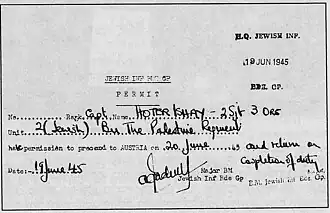 H.Q. JEWISH INF.
19 JUN 1945
BDE. GP.
JEWISH INF BDE GP
PERMIT
No. Rank Capt Name HOTER-ISHAY - 2 Sjt 3 ORs
Unit 2 (Jewish) Bn. The Palestine Regiment
has permission to proceed to AUSTRIA on 20 June 45 and return on
completion of duty
Date:- 19 June 45
Major BM
Jewish Inf Bde Gp
B.M. Jewish Inf Bde Gp